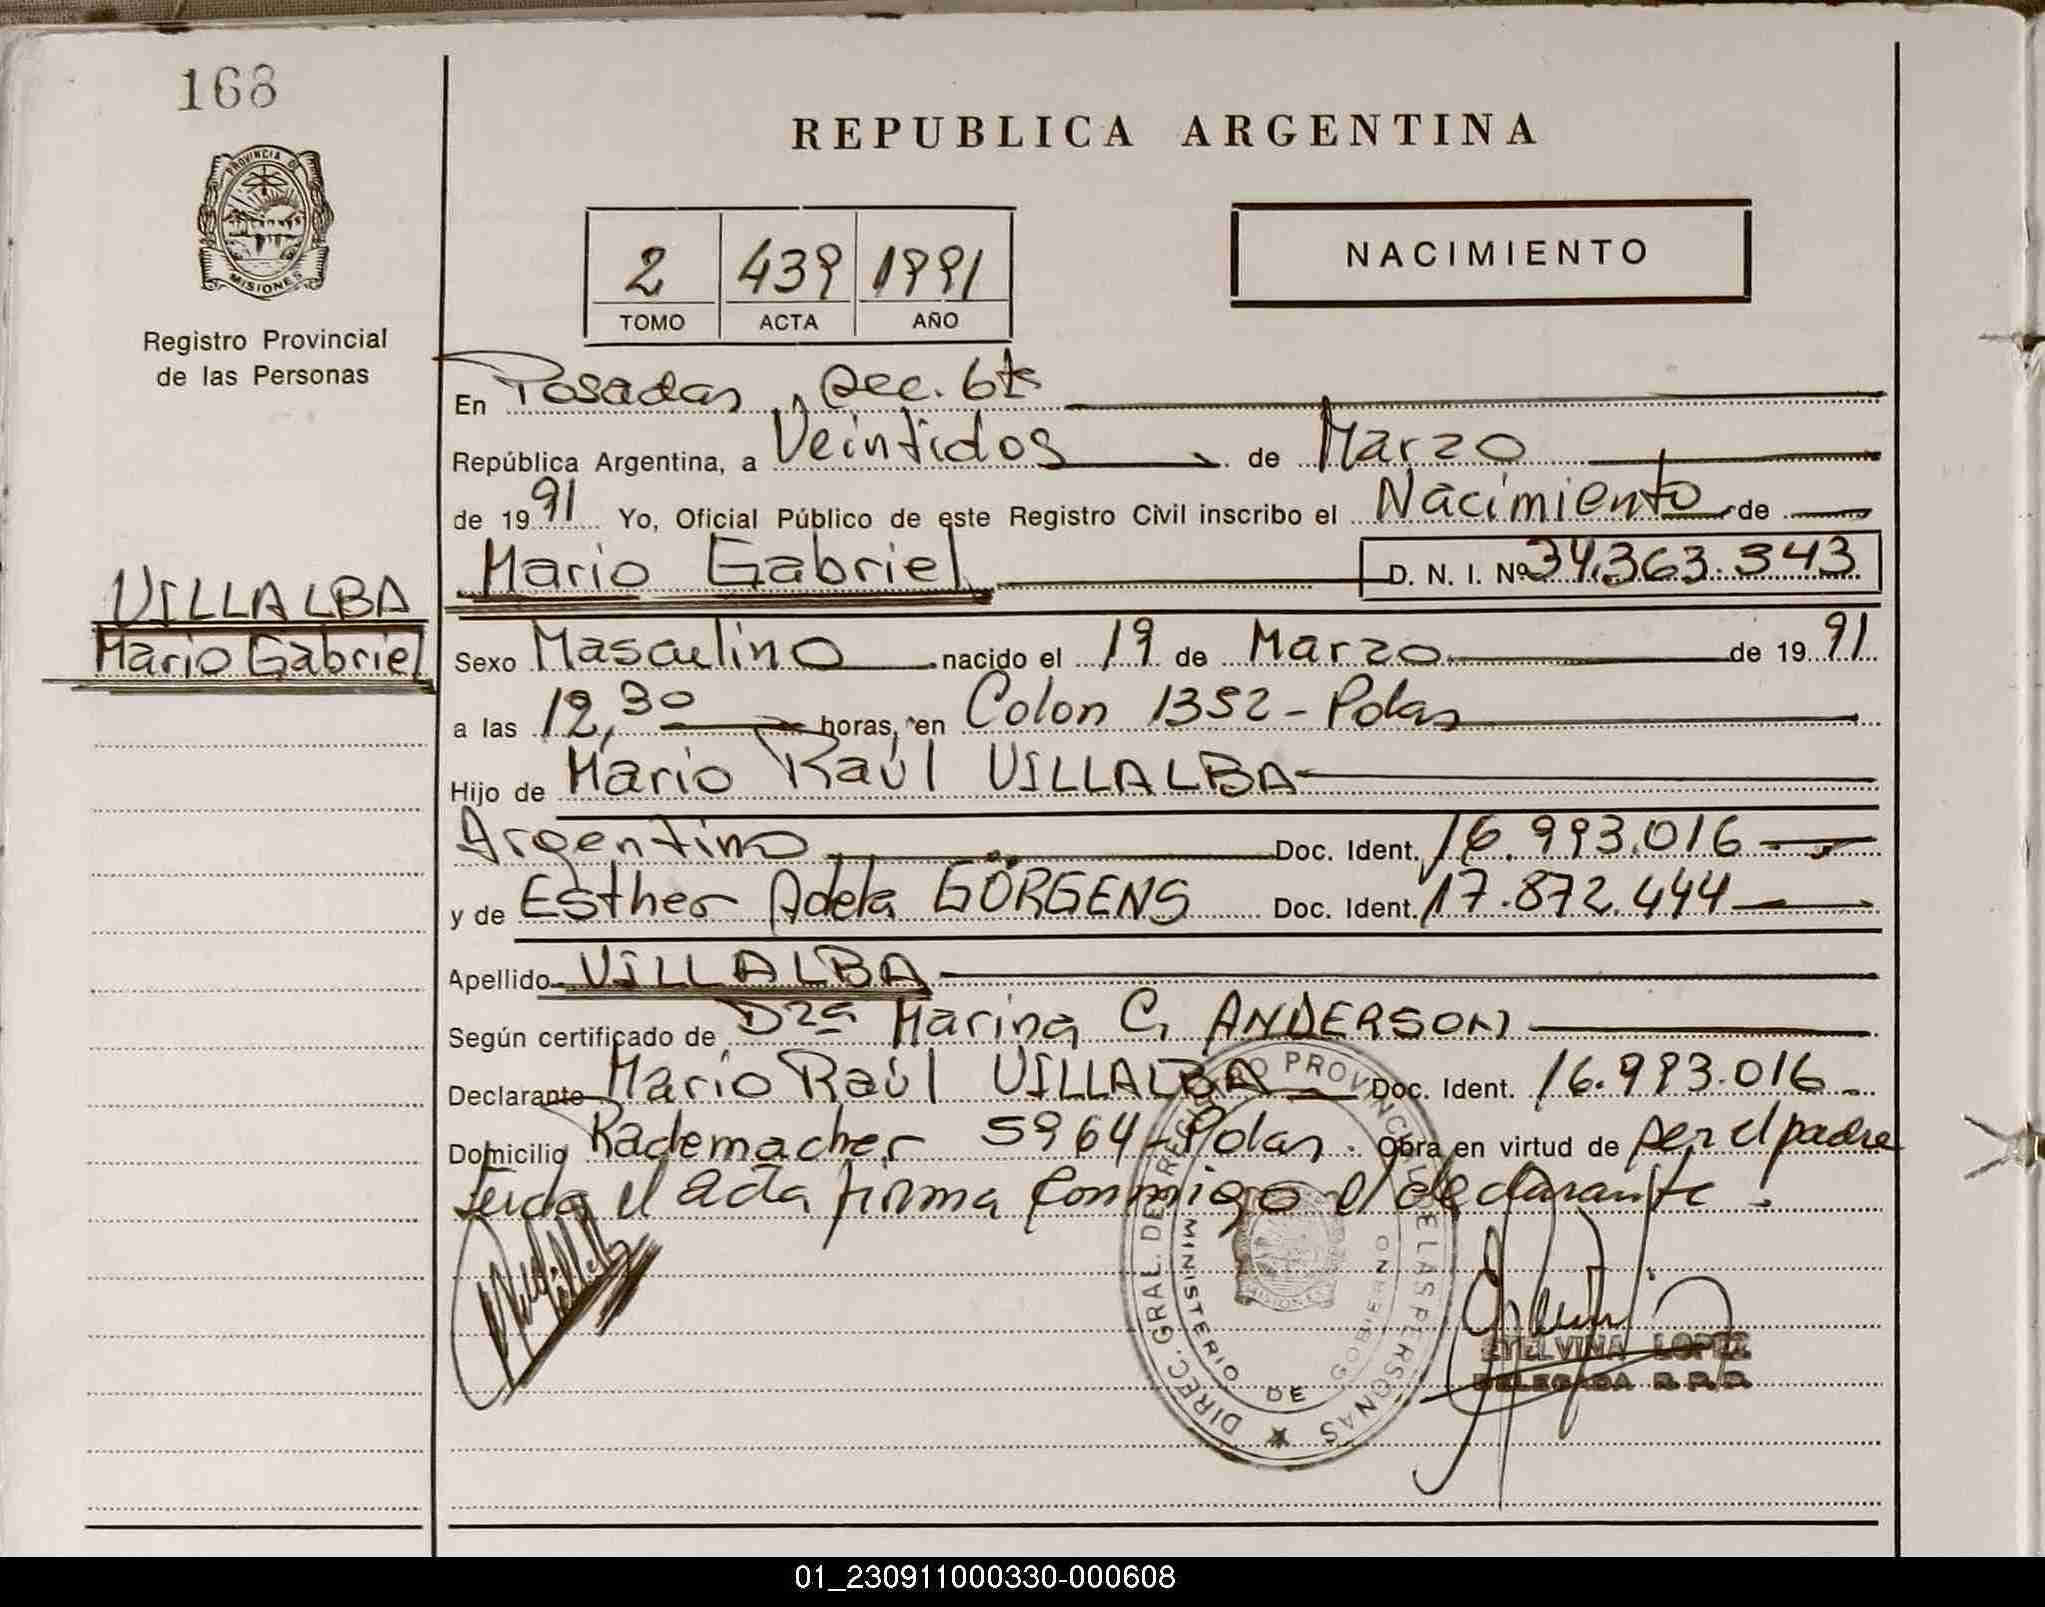 168
PROVINCIA DE
MISIONES
Registro Provincial
de las Personas
REPUBLICA ARGENTINA
2 439 1991
TOMO ACTA AÑO
NACIMIENTO
En Posadas, Sec. 6ta
República Argentina, a Veintidos de Marzo
de 1991 Yo, Oficial Público de este Registro Civil inscribo el Nacimiento de
Mario Gabriel D. N. I. Nº 34.363.343
VILLALBA
Mario Gabriel
Sexo Masculino nacido el 19 de Marzo de 1991
a las 12,30 horas, en Colon 1352 - Pdas
Hijo de Mario Raúl VILLALBA
Argentino Doc. Ident. 16.993.016
y de Esther Adela GÖRGENS Doc. Ident. 17.872.444
Apellido VILLALBA
Según certificado de Dra Marina C. ANDERSON
Declarante Mario Raúl VILLALBA Doc. Ident. 16.993.016
Domicilio Rademacher 5964 - Pdas. Obra en virtud de ser el padre
Leida el acta firma conmigo el declarante.
DIREC. GRAL. DE REGISTRO PROVINCIAL DE LAS PERSONAS
MINISTERIO DE GOBIERNO
MISIONES
ETELVINA LOPEZ
DELEGADA R.P.P.
01_230911000330-000608